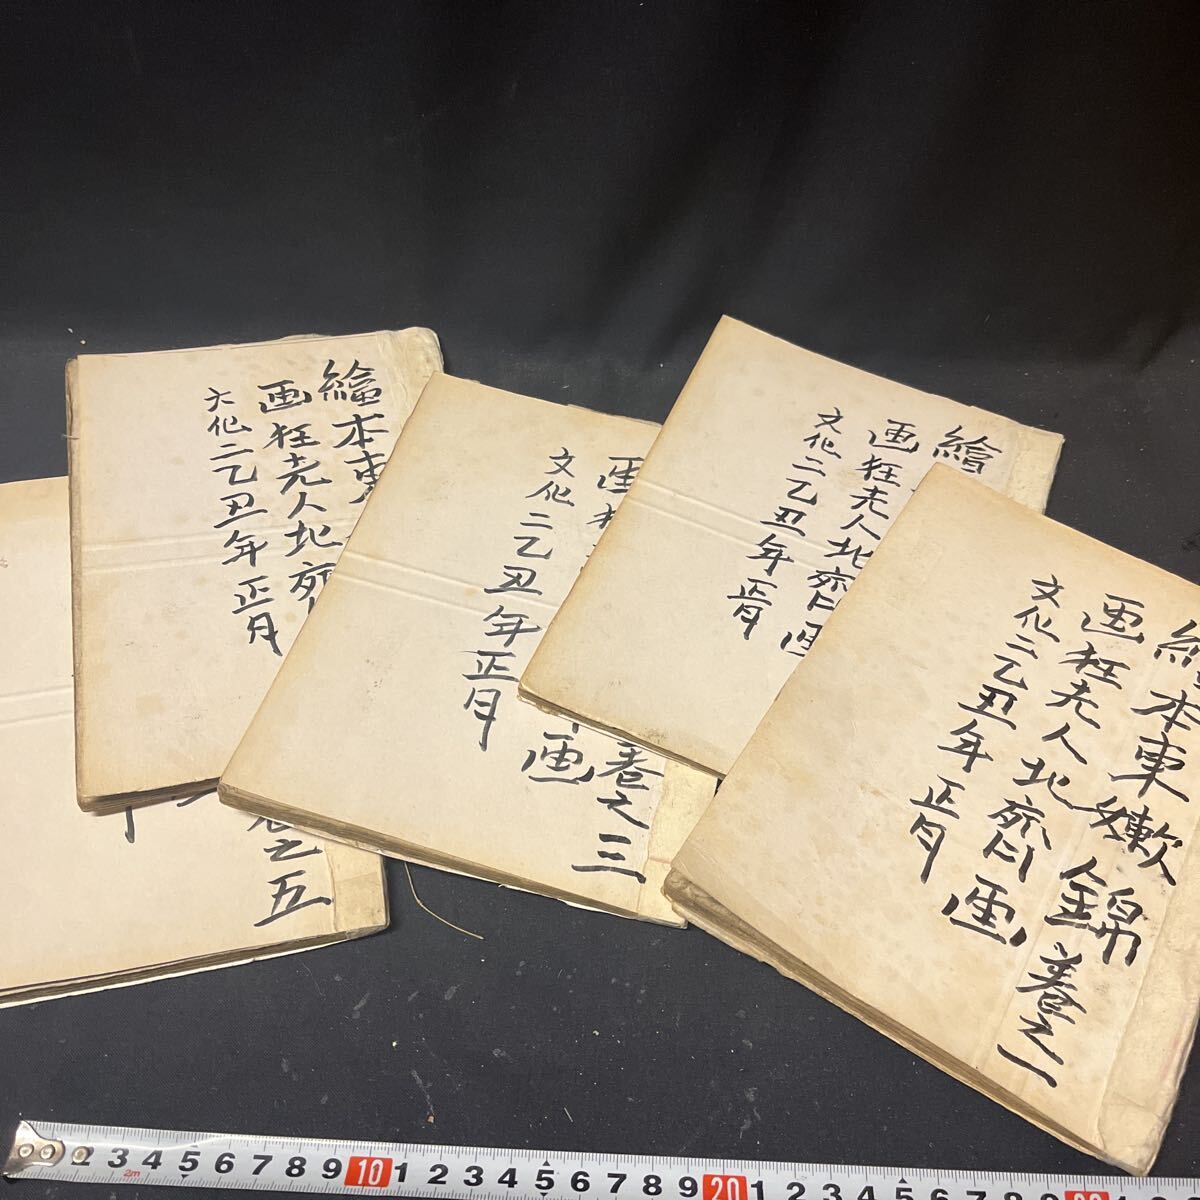 繪本東嫩錦巻之一
画狂老人北齋画
文化二乙丑年正月
繪
画狂老人北齋画
文化二乙丑年正月
巻之三
画
文化二乙丑年正月
繪本東
画狂老人北齋
文化二乙丑年正月
之五
2m
3 4 5 6 7 8 9 10 1 2 3 4 5 6 7 8 9 20 1 2 3 4 5 6 7 8 9